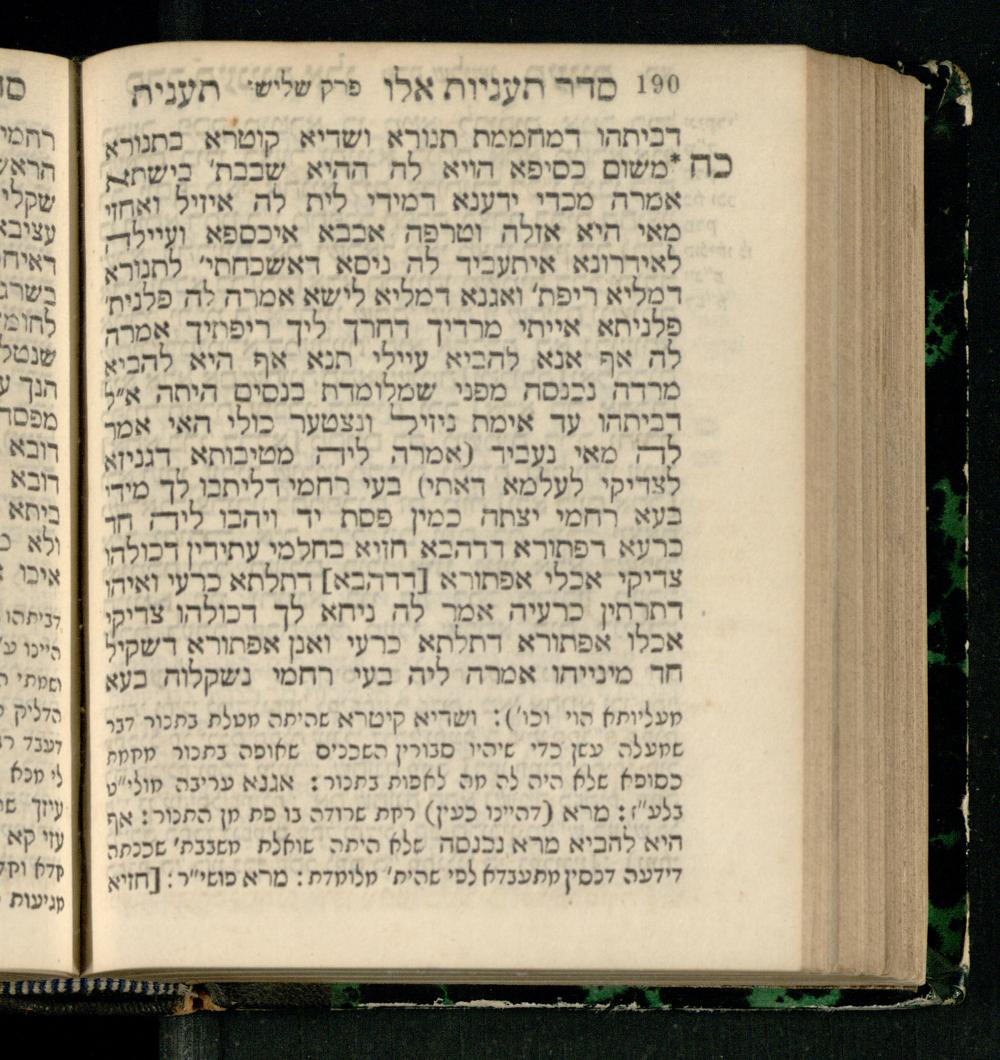 190 סדר תעניות אלו פרק שליש׳ תענית
דביתהו דמחממת תנורא ושדיא קוטרא בתנורא
כח *משום כסיפא הויא לה ההיא שבבת׳ בישתא
אמרה מכדי ידענא דמידי לית לה איזיל ואחזי
מאי היא אזלה וטרפה אבבא איכספא ועיילה
לאידרונא איתעביד לה ניסא דאשכחתי׳ לתנורא
דמליא ריפת׳ ואגנא דמליא לישא אמרה לה פלנית׳
פלניתא אייתי מרדיך דחרך ליך ריפתיך אמרה
לה אף אנא להביא עיילי תנא אף היא להביא
מרדה נכנסה מפני שמלומדת בנסים היתה א״ל
דביתהו עד אימת ניזיל ונצטער כולי האי אמר
לה מאי נעביד (אמרה ליה מטיבותא דגניזא
לצדיקי לעלמא דאתי) בעי רחמי דליתבו לך מידי
בעא רחמי יצתה כמין פסת יד ויהבו ליה חד
כרעא דפתורא דדהבא חזיא בחלמי עתידין דכולהו
צדיקי אכלי אפתורא [דדהבא] דתלתא כרעי ואיהו
דתרתין כרעיה אמר לה ניחא לך דכולהו צדיקי
אכלו אפתורא דתלתא כרעי ואנן אפתורא דשקיל
חד מינייהו אמרה ליה בעי רחמי נשקלוה בעא
מעליותא הוי וכו׳): ושדיא קיטרא שהיתה מטלת בתנור דבר
שמעלה עשן כדי שיהיו סבורין השכנים שאופה בתנור מחמת
כסופא שלא היה לה מה לאפות בתנור: אגנא עריבה מולי״ט
בלע״ז: מרא (דהיינו כעין) רחת שרודה בו פת מן התנור: אף
היא להביא מרא נכנסה שלא היתה שואלת משבבת׳ שכנתה
דידעה דנסין מתעבדא לפי שהית׳ מלומדת: מרא פושי״ר: [חזיא